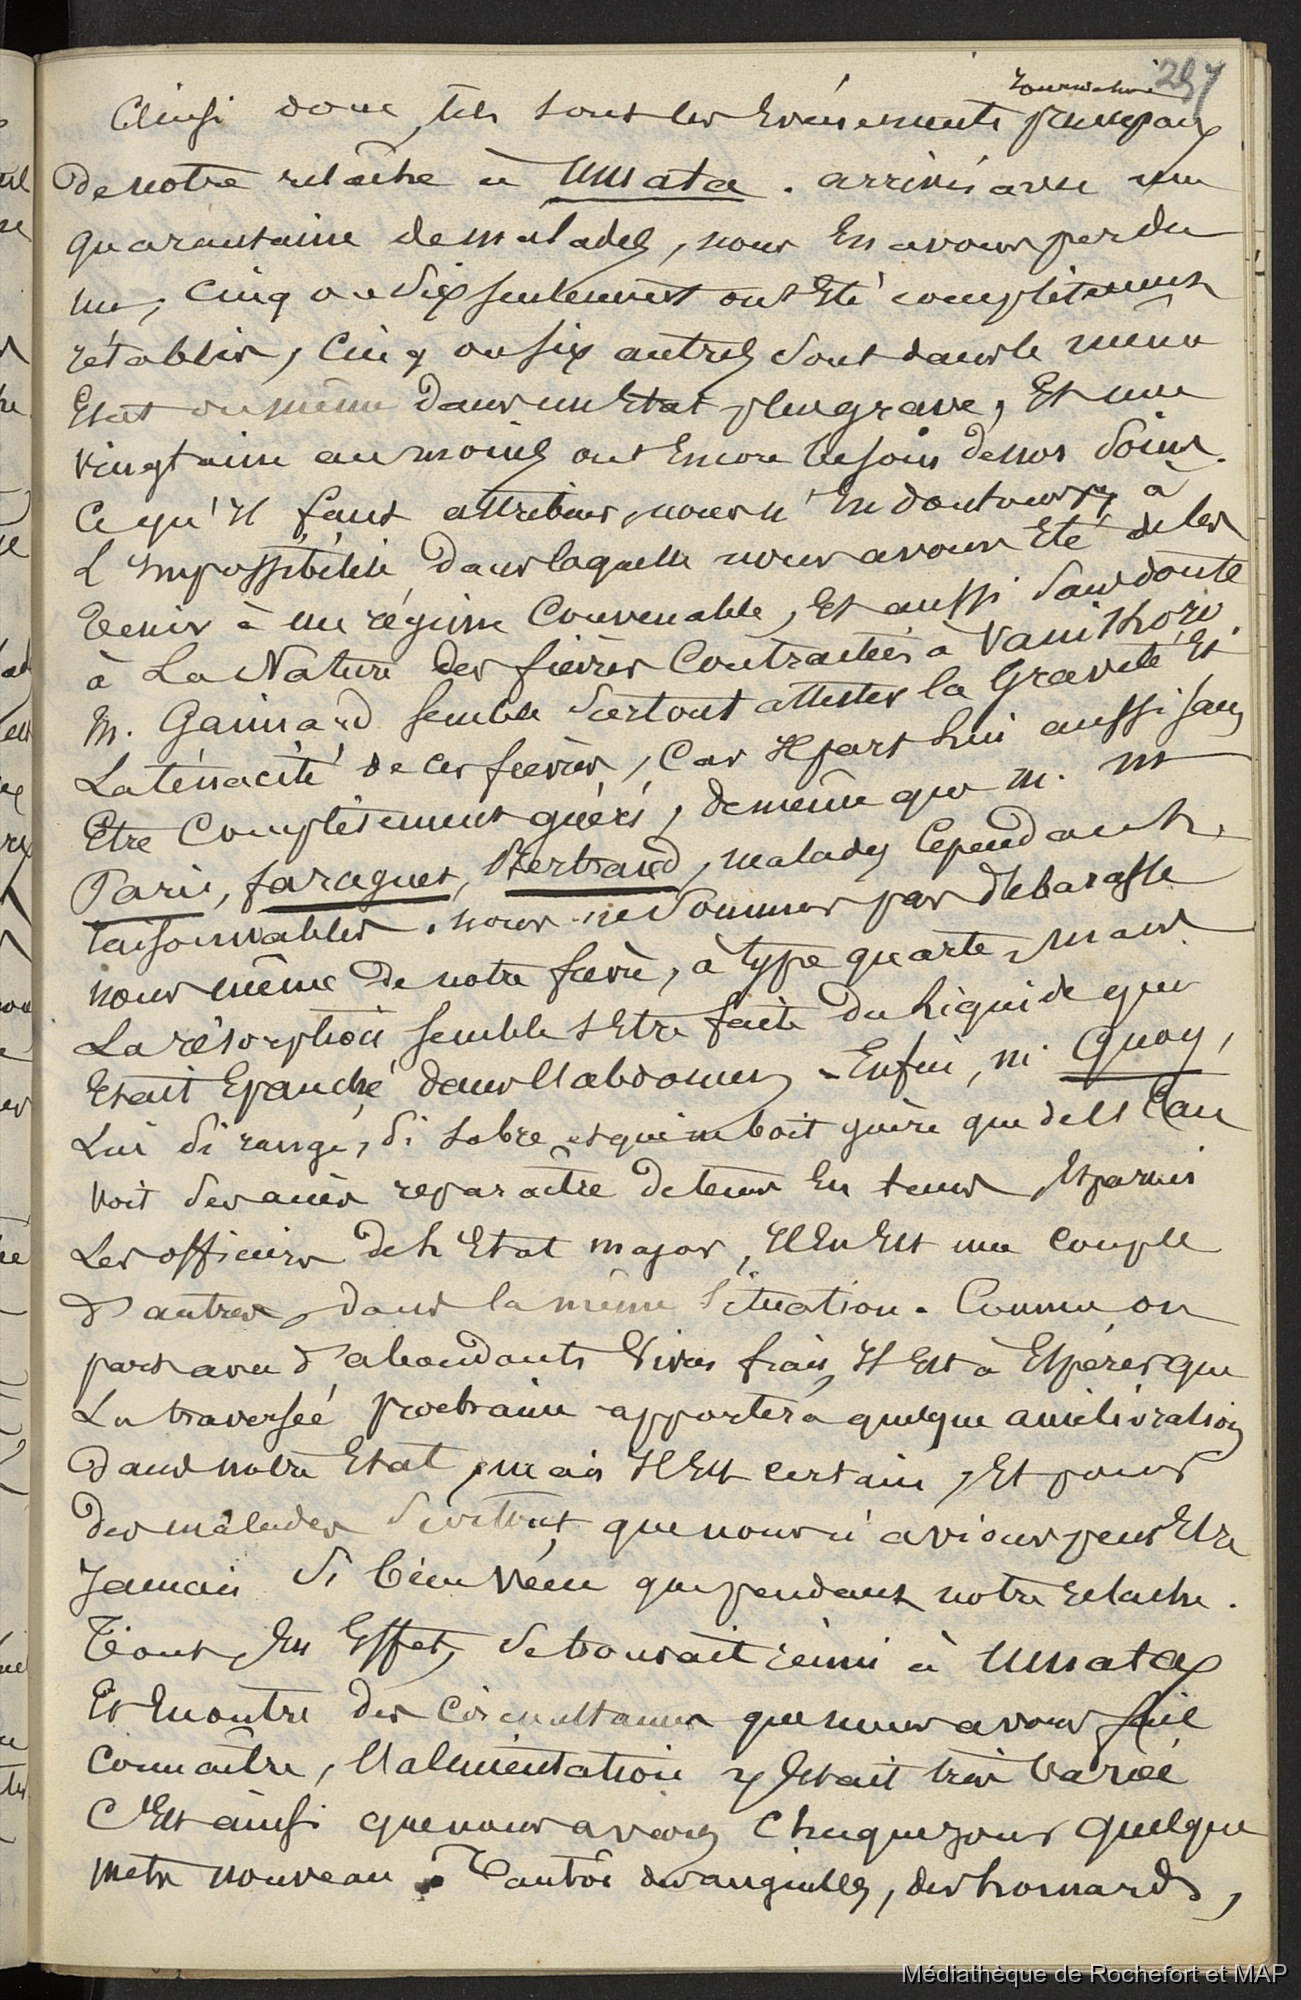 297
Ainsi donc, tels sont les Evénements principaux
de notre relâche à Umata. arrivés avec une
quarantaine de malades, nous En avons perdu
un, cinq ou six seulement ont Eté complètement
rétablis, cinq ou six autres sont dans le même
Etat ou même dans un Etat plus grave, Et une
vingtaine au moins ont Encore besoin de nos soins.
Ce qu'Il faut attribuer, nous n'En doutons pas, à
L'Impossibilité dans laquelle nous avons Eté de les
tenir à un régime Convenable, Et aussi sans doute
à La Nature des fièvres Contractées à Vanikoro.
M. Gaimard semble surtout attester la Gravité Et
La ténacité de ces fièvres, Car Il part lui aussi sans
Etre Complètement guéri, de même que M. M.
Paris, faraguet, Bertrand, malades Cependant
raisonnables. nous ne sommes pas débarassé
nous même de notre fièvre, à type quarte, Mais
La résorption semble s'Etre faite du liquide qui
Etait Epanché dans l'abdomen. Enfin, M. Quoy,
Lui si rangé, si sobre et qui ne boit guère que de l'Eau
voit ses accès reparaître de tems En tems, Et parmi
Les officiers de l'Etat major, Il En Est une couple
d'autres, dans la même situation. Comme on
part avec d'abondants vivres frais, Il Est à Espérer que
La traversée prochaine apportera quelque amélioration
dans notre Etat, mais Il Est certain, Et pour
des malades surtout, que nous n'avions peut Etre
Jamais si bien vécu que pendant notre relache.
Tout, En Effet, se trouvait réuni à Umata
Et En outre des circonstances que nous avons fait
connaître, l'alimentation y Etait très variée
C'Est ainsi que nous avions Chaque jour quelque
mets nouveau. Tantôt des anguilles, des homards,
Médiathèque de Rochefort et MAP